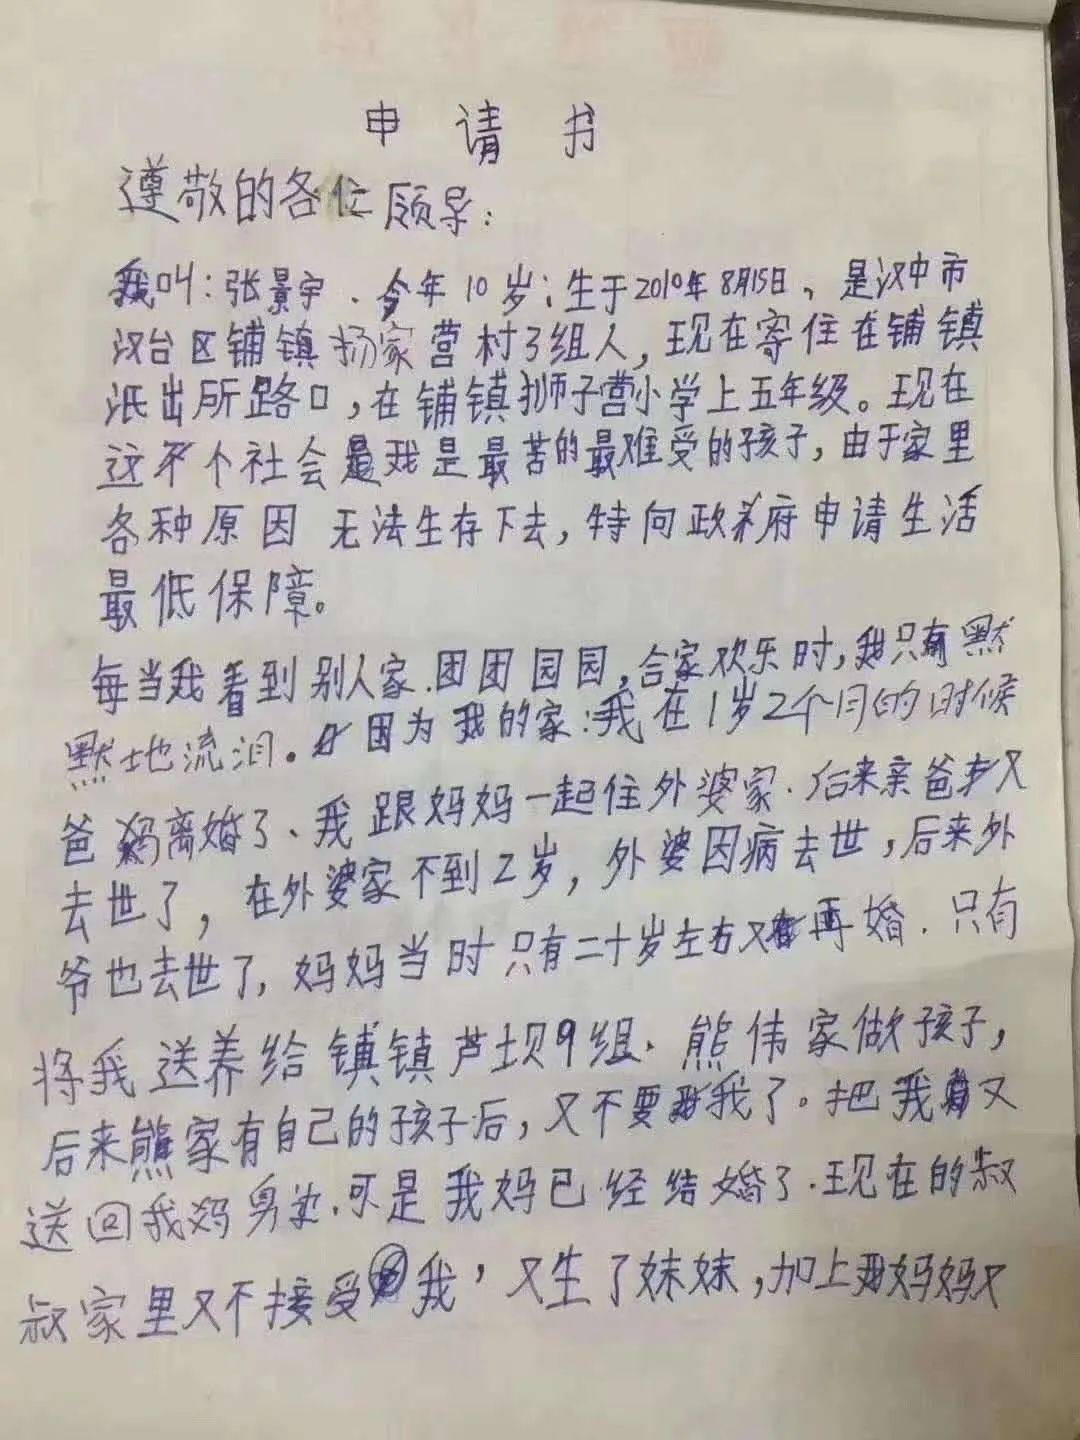 申请书
遵敬的各位领导：
我叫：张景宇．今年10岁；生于2010年8月15日，是汉中市
汉台区铺镇杨家营村3组人，现在寄住在铺镇
派出所路口，在铺镇狮子营小学上五年级。现在
这个社会是我是最苦的最难受的孩子，由于家里
各种原因 无法生存下去，特向政府申请生活
最低保障。
每当我看到别人家．团团园园，合家欢乐时，我只有默
默地流泪。因为我的家：我在1岁2个月的时候
爸妈离婚了、我跟妈妈一起住外婆家．后来亲爸又
去世了，在外婆家不到2岁，外婆因病去世，后来外
爷也去世了，妈妈当时只有二十岁左右又再婚．只有
将我送养给镇镇芦坝9组．熊伟家做孩子，
后来熊家有自己的孩子后，又不要我了。把我又
送回我妈身边．可是我妈已经结婚了．现在的叔
叔家里又不接受我，又生了妹妹，加上我妈妈又